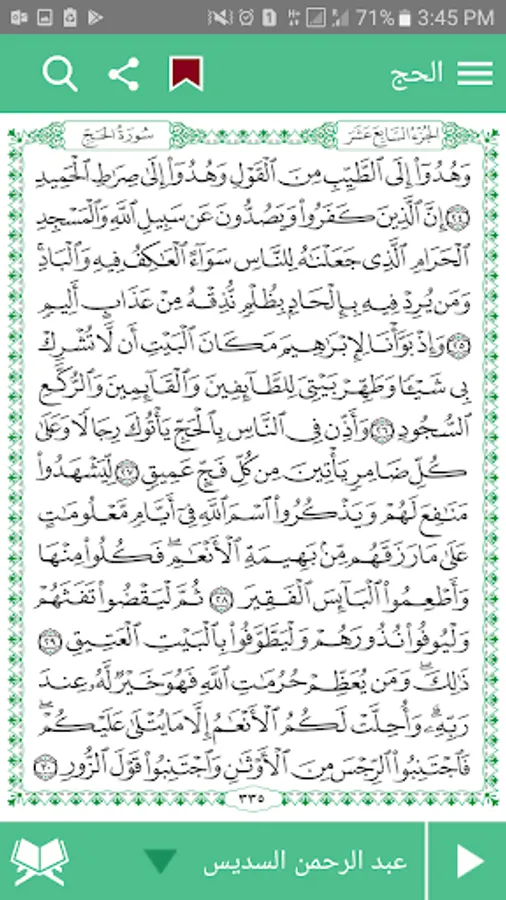 71% 3:45 PM
الحج
سُورَةُ الحَجّ الجُزءُ السَّابِعَ عَشَرَ
وَهُدُوٓا۟ إِلَى ٱلطَّيِّبِ مِنَ ٱلْقَوْلِ وَهُدُوٓا۟ إِلَىٰ صِرَٰطِ ٱلْحَمِيدِ
٢٤ إِنَّ ٱلَّذِينَ كَفَرُوا۟ وَيَصُدُّونَ عَن سَبِيلِ ٱللَّهِ وَٱلْمَسْجِدِ
ٱلْحَرَامِ ٱلَّذِى جَعَلْنَٰهُ لِلنَّاسِ سَوَآءً ٱلْعَٰكِفُ فِيهِ وَٱلْبَادِ ۚ
وَمَن يُرِدْ فِيهِ بِإِلْحَادٍۭ بِظُلْمٍ نُّذِقْهُ مِنْ عَذَابٍ أَلِيمٍ
٢٥ وَإِذْ بَوَّأْنَا لِإِبْرَٰهِيمَ مَكَانَ ٱلْبَيْتِ أَن لَّا تُشْرِكْ
بِى شَيْـًٔا وَطَهِّرْ بَيْتِىَ لِلطَّآئِفِينَ وَٱلْقَآئِمِينَ وَٱلرُّكَّعِ
ٱلسُّجُودِ ٢٦ وَأَذِّن فِى ٱلنَّاسِ بِٱلْحَجِّ يَأْتُوكَ رِجَالًا وَعَلَىٰ
كُلِّ ضَامِرٍ يَأْتِينَ مِن كُلِّ فَجٍّ عَمِيقٍ ٢٧ لِّيَشْهَدُوا۟
مَنَٰفِعَ لَهُمْ وَيَذْكُرُوا۟ ٱسْمَ ٱللَّهِ فِىٓ أَيَّامٍ مَّعْلُومَٰتٍ
عَلَىٰ مَا رَزَقَهُم مِّنۢ بَهِيمَةِ ٱلْأَنْعَٰمِ ۖ فَكُلُوا۟ مِنْهَا
وَأَطْعِمُوا۟ ٱلْبَآئِسَ ٱلْفَقِيرَ ٢٨ ثُمَّ لْيَقْضُوا۟ تَفَثَهُمْ
وَلْيُوفُوا۟ نُذُورَهُمْ وَلْيَطَّوَّفُوا۟ بِٱلْبَيْتِ ٱلْعَتِيقِ ٢٩
ذَٰلِكَ ۖ وَمَن يُعَظِّمْ حُرُمَٰتِ ٱللَّهِ فَهُوَ خَيْرٌ لَّهُۥ عِندَ
رَبِّهِۦ ۗ وَأُحِلَّتْ لَكُمُ ٱلْأَنْعَٰمُ إِلَّا مَا يُتْلَىٰ عَلَيْكُمْ ۖ
فَٱجْتَنِبُوا۟ ٱلرِّجْسَ مِنَ ٱلْأَوْثَٰنِ وَٱجْتَنِبُوا۟ قَوْلَ ٱلزُّورِ ٣٠
٣٣٥
عبد الرحمن السديس